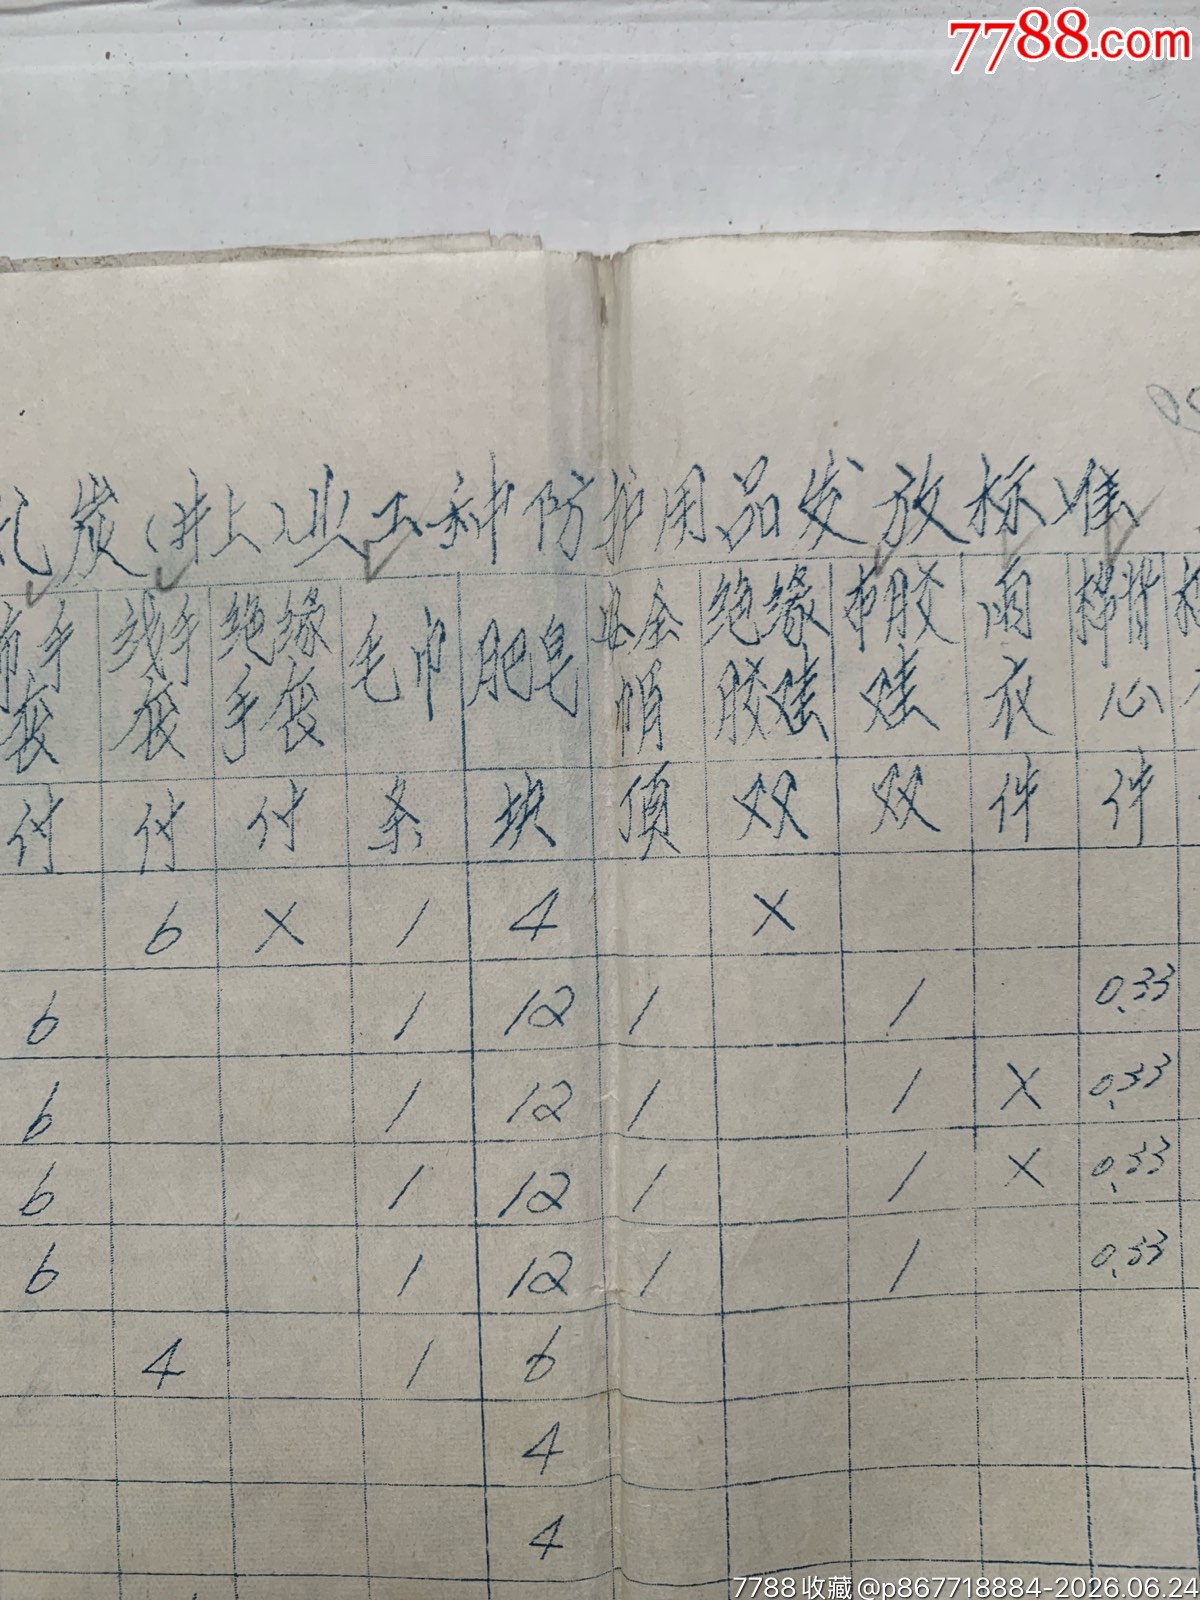 7788.com
炭(井上)业工种防护用品发放标准
布手袋 线手袋 绝缘手袋 毛巾 肥皂 安全帽 绝缘胶鞋 胶鞋 雨衣 棉背心
付 付 付 条 块 顶 双 双 件 件
6 X 1 4 X
6 1 12 1 1 0.33
6 1 12 1 1 X 0.33
6 1 12 1 1 X 0.33
6 1 12 1 1 0.33
4 1 6
4
4
7788收藏@p867718884-2026.06.24